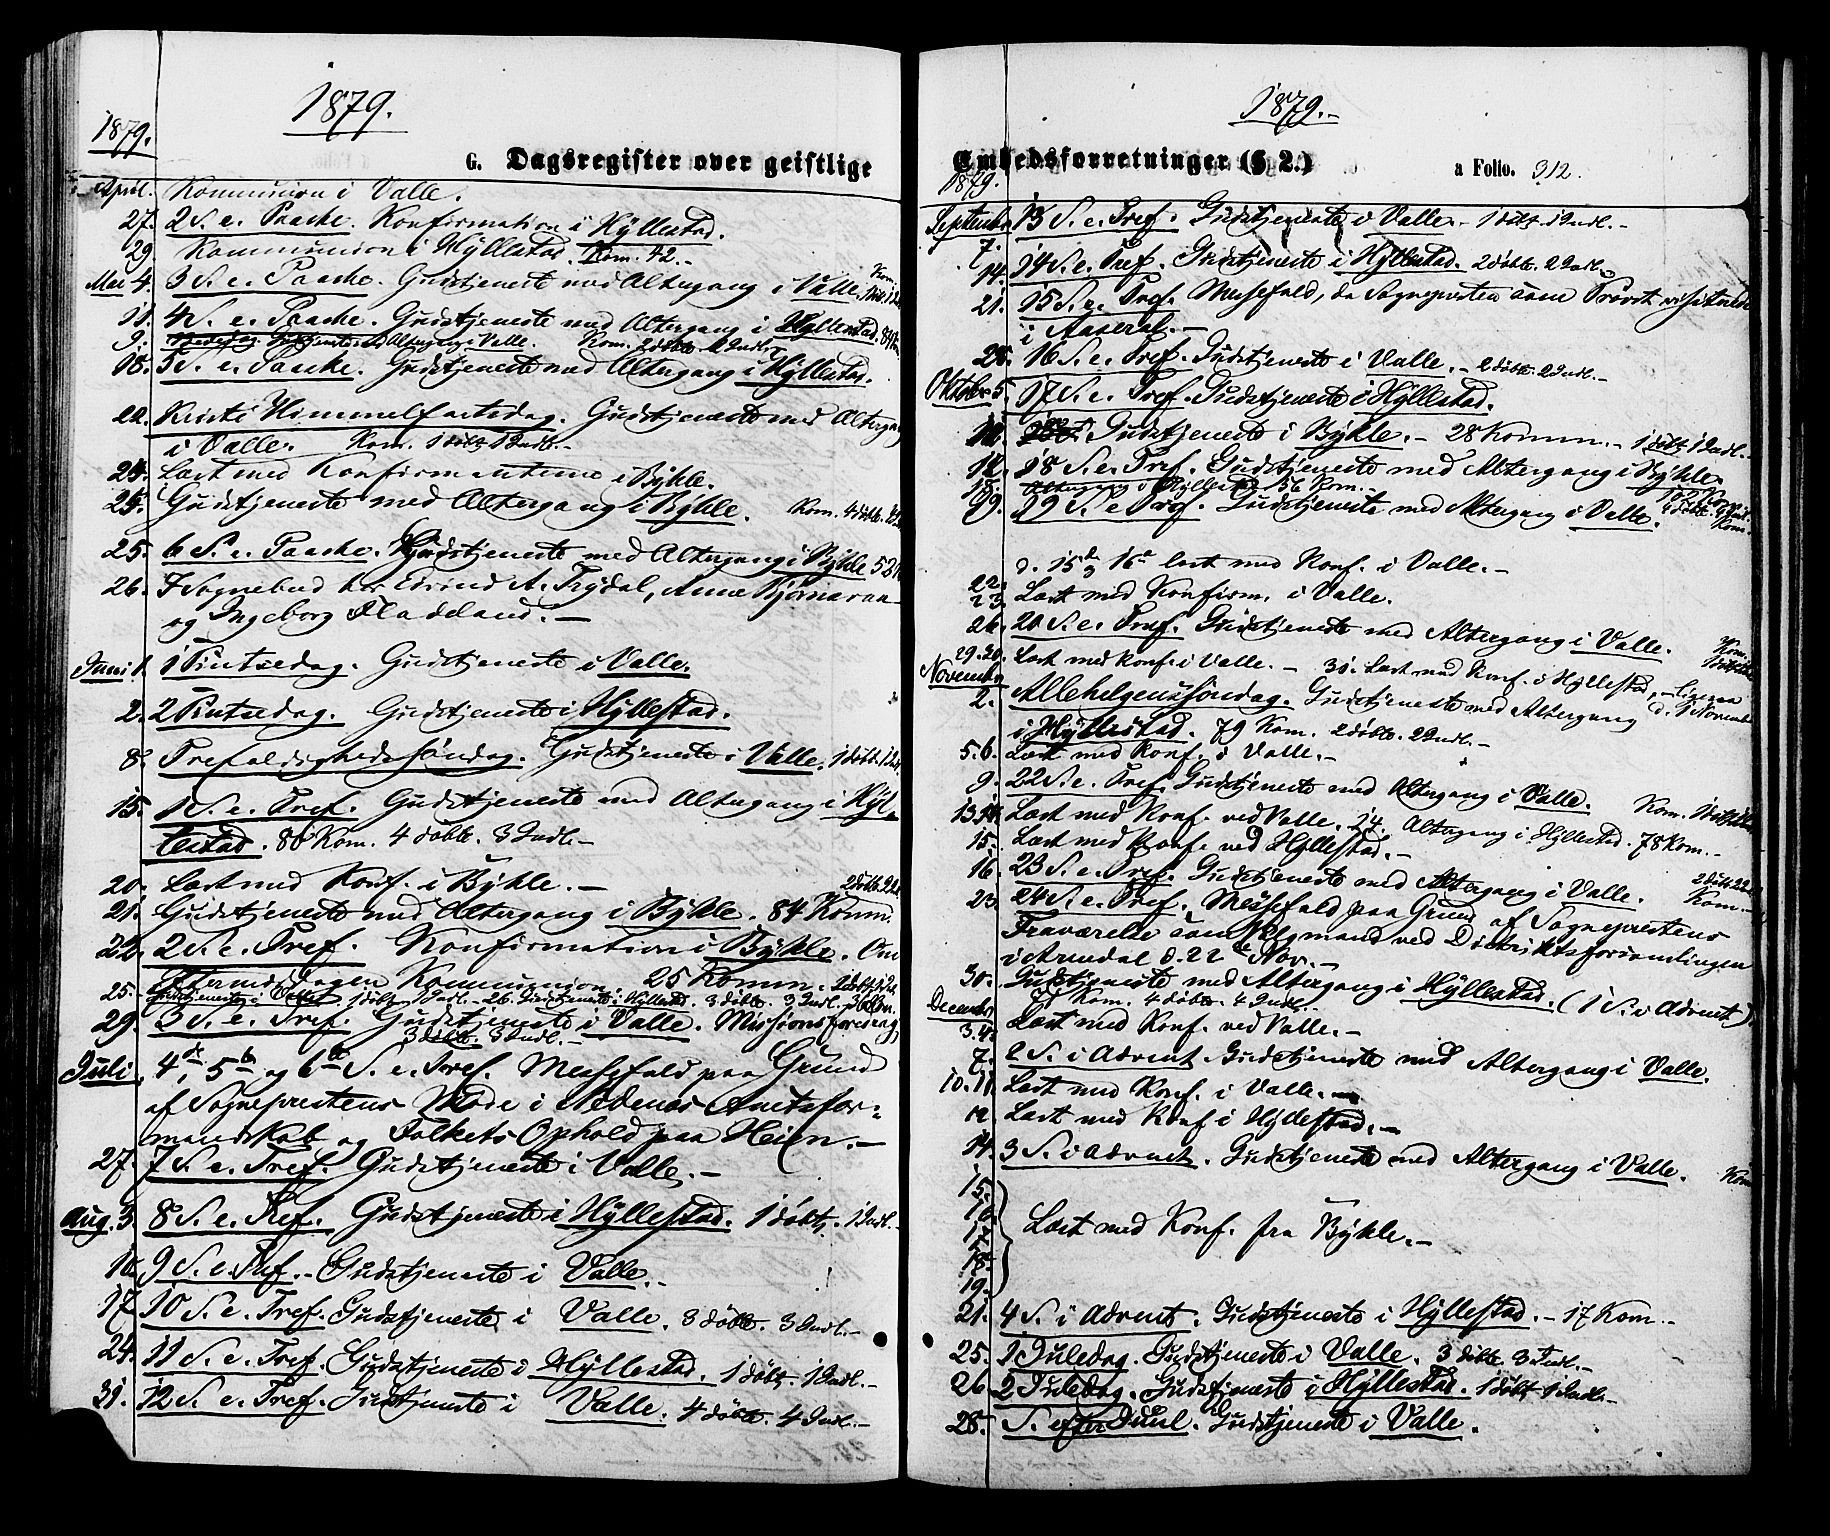 1879.
1879.
G. Dagsregister over geistlige
April. Kommunion i Valle.
27. 2 S. e. Paaske. Konfirmation i Hyllestad.
29. Kommunion i Hyllestad. Kom. 42.-
Mai 4. 3 S. e. Paaske. Gudstjeneste med Altergang i Valle. Kom.
11. 4 S. e. Paaske. Gudstjeneste med Altergang i Hyllestad.
9. Bededag. Gudstjeneste m. Altergang i Valle. Kom. 2 døbte
18. 5 S. e. Paaske. Gudstjeneste med Altergang i Hyllestad.
22. Kristi Himmelfartsdag. Gudstjeneste med Altergang
i Valle. Kom. 1 døbt 1 Indl.-
24. Læst med Konfirmanterne i Bykle.
Gudstjeneste med Altergang i Bykle. Kom. 4 døbte.
25. 6 S. e. Paaske. Gudstjeneste med Altergang i Bykle 52
26. I Sognebud hos Eivind A. Trydal, Anne Bjørnaraa
og Ingeborg Fladeland.-
Juni 1. 1 Pintsedag. Gudstjeneste i Valle.
2. 2 Pintsedag. Gudstjeneste i Hyllestad.
8. Trefoldighedssøndag. Gudstjeneste i Valle. 1 døbt. 1 Indl.
15. 1 S. e. Tref. Gudstjeneste med Altergang i Hyl-
lestad. 86 Kom. 4 døbte. 3 Indl.-
20. Læst med Konf. i Bykle.- 2 døbte.
21. Gudstjeneste med Altergang i Bykle. 84 Komm.
22. 2 S. e. Tref. Konfirmation i Bykle. Om
Eftermiddagen Kommunion. 25 Komm.
25. Gudstjeneste i Valle 1 døbt 1 Indl.- 26. Gudstjeneste i Hyllestad. 3 døbte. 3 Indl.-
29. 3 S. e. Tref. Gudstjeneste i Valle. Missionsforening
3 døbte. 3 Indl.-
Juli 4de, 5te og 6te S. e. Tref. Messefald paa Grund
af Sognepræstens Møde i Nedenæs Amtsfor-
mandskab og Folkets Ophold paa Heien.-
27. 7 S. e. Tref. Gudstjeneste i Valle.-
Aug. 3. 8 S. e. Tref. Gudstjeneste i Hyllestad. 1 døbt. 1 Indl.-
10. 9 S. e. Tref.- Gudstjeneste i Valle.-
17. 10 S. e. Tref. Gudstjeneste i Valle. 3 døbte. 3 Indl.-
24. 11 S. e. Tref. Gudstjeneste i Hyllestad. 1 døbt. 1 Indl.-
31. 12 S. e. Tref. Gudstjeneste i Valle. 4 døbte. 4 Indl.-
1879.-
Embedsforretninger (§ 2.)
a Folio. 312.
1879.
September 7. 13 S. e. Tref. Gudstjeneste i Valle.- 1 døbt. 1 Indl.-
14. 14 S. e. Tref. Gudstjeneste i Hyllestad. 2 døbte. 2 Indl.
21. 15 S. e. Tref. Messefald, da Sognepresten som Provst visiterede
i Aaseral.-
28. 16 S. e. Tref. Gudstjeneste i Valle.- 2 døbte. 2 Indl.-
Oktober 5. 17 S. e. Tref. Gudstjeneste i Hyllestad.
Gudstjeneste i Bykle.- 28 Komm.- 1 døbt 1 Indl.-
12. 18 S. e. Tref. Gudstjeneste med Altergang i Bykle.
Altergang i Hyllestad 56 Kom.-
19. 19 S. e. Tref. Gudstjeneste med Altergang i Valle.
Kom.
d. 15de og 16de læst med Konf. i Valle.-
22. 23. Læst med Konfirm. i Valle.
26. 20 S. e. Tref. Gudstjeneste med Altergang i Valle. Kom.
29. 30. Læst med Konf. i Valle.- 30. Læst med Konf. i Hyllestad.- Ligesaa
d. 1 November
November
2. Allehelgenssøndag. Gudstjeneste med Altergang
i Hyllestad. 79 Kom. 2 døbte. 2 Indl.-
5. 6. Læst med Konf. i Valle.-
9. 22 S. e. Tref. Gudstjeneste med Altergang i Valle. Kom.
13. 14. Læst med Konf. ved Valle. 14. Altergang i Hyllestad. 78 Kom.-
15. Læst med Konf. ved Hyllestad.-
16. 23 S. e. Tref. Gudstjeneste med Altergang i Valle. Kom.- 2 døbt.
23. 24 S. e. Tref. Messefald paa Grund af Sogneprestens
Fraværelse som Valgmand ved Distriktsforsamlingen
i Arendal d. 22de Nov.-
30. Gudstjeneste med Altergang i Hyllestad. (1 S. i Advent)
Kom. 4 døbte. 4 Indl.
December
3. 4. Læst med Konf. ved Valle.-
7. 2 S. i Advent. Gudstjeneste med Altergang i Valle.
10. 11. Læst med Konf. i Valle.-
12. Læst med Konf i Hyllestad.-
14. 3 S. i Advent. Gudstjeneste med Altergang i Valle. Kom
15.
16.
17. Læst med Konf. fra Bykle.-
18.
19.
21. 4 S. i Advent. Gudstjeneste i Hyllestad.- 17 Kom.-
25. 1 Juledag. Gudstjeneste i Valle. 3 døbte. 3 Indl.-
26. 2 Juledag. Gudstjeneste i Hyllestad. 1 døbt 1 Indl.-
28. S. efter Juul. Gudstjeneste i Valle.